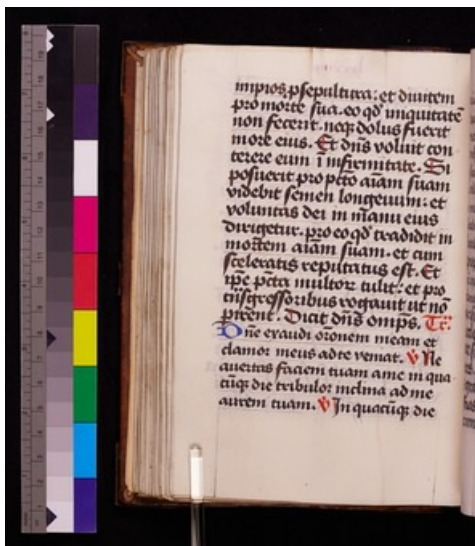 impios p sepultura: et diuitem
pro morte sua. eo qd iniquitatē
non fecerit. neqꝫ dolus fuerit
in ore eius. Et dn̄s voluit con
terere eum ī infirmitate. Si
posuerit pro pctō aīam suam
videbit semen longeuum: et
voluntas dei in manu eius
dirigetur. pro eo qd tradidit in
mortem aīam suam. et cum
sceleratis reputatus est. Et
ipse pctā multor tulit: et pro
trāsgressoribus rogauit ut nō
pirent. Dicit dn̄s omps. Tc̄.
Dn̄e exaudi orōnem meam et
clamor meus ad te veniat. ℣ Ne
auertas faciem tuam a me in qua
cūqꝫ die tribulor inclina ad me
aurem tuam. ℣ In quacūqꝫ die